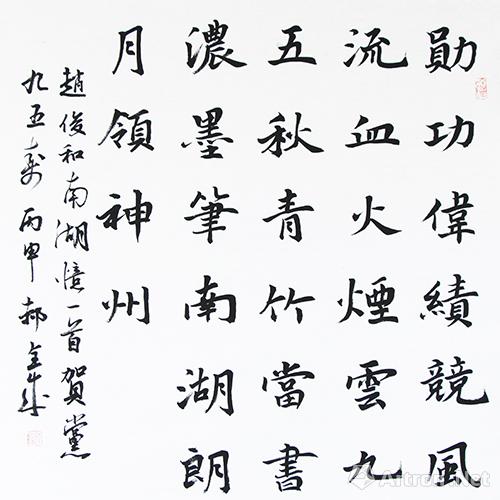 勛功偉績競風
流血火煙雲九
五秋青竹當書
濃墨筆南湖朗
月領神州
趙俊和南湖憶一首賀黨
九五壽丙申郝金城
Artron.Net